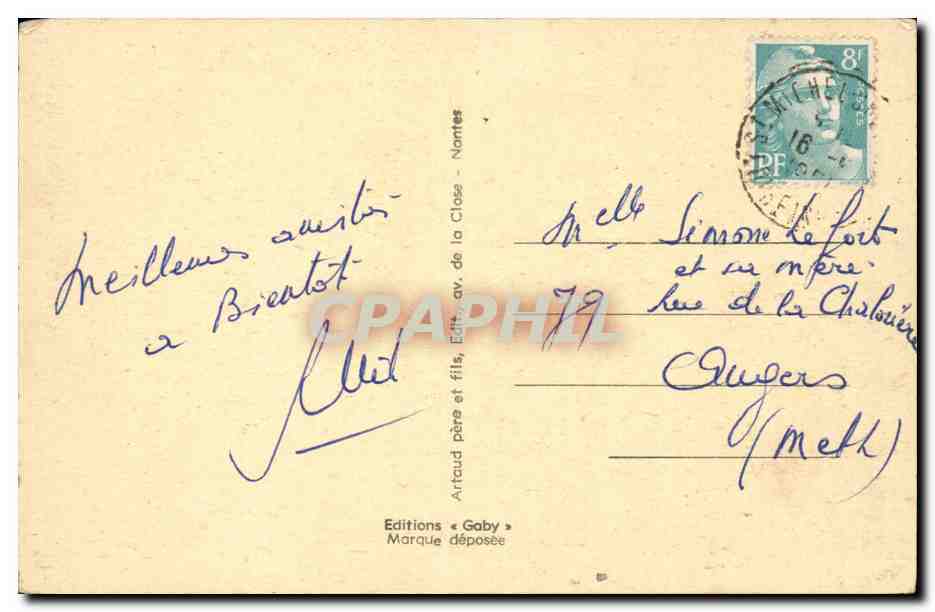 Meilleures amitiés
a Bientot
Artaud père et fils, Edit., av. de la Close - Nantes
Editions « Gaby »
Marque déposée
8f
RF
ST MICHEL
16
Melle Simone Lefort
et sa mère
79 rue de la Chalouère
Angers
(M et L)
CPAPHIL